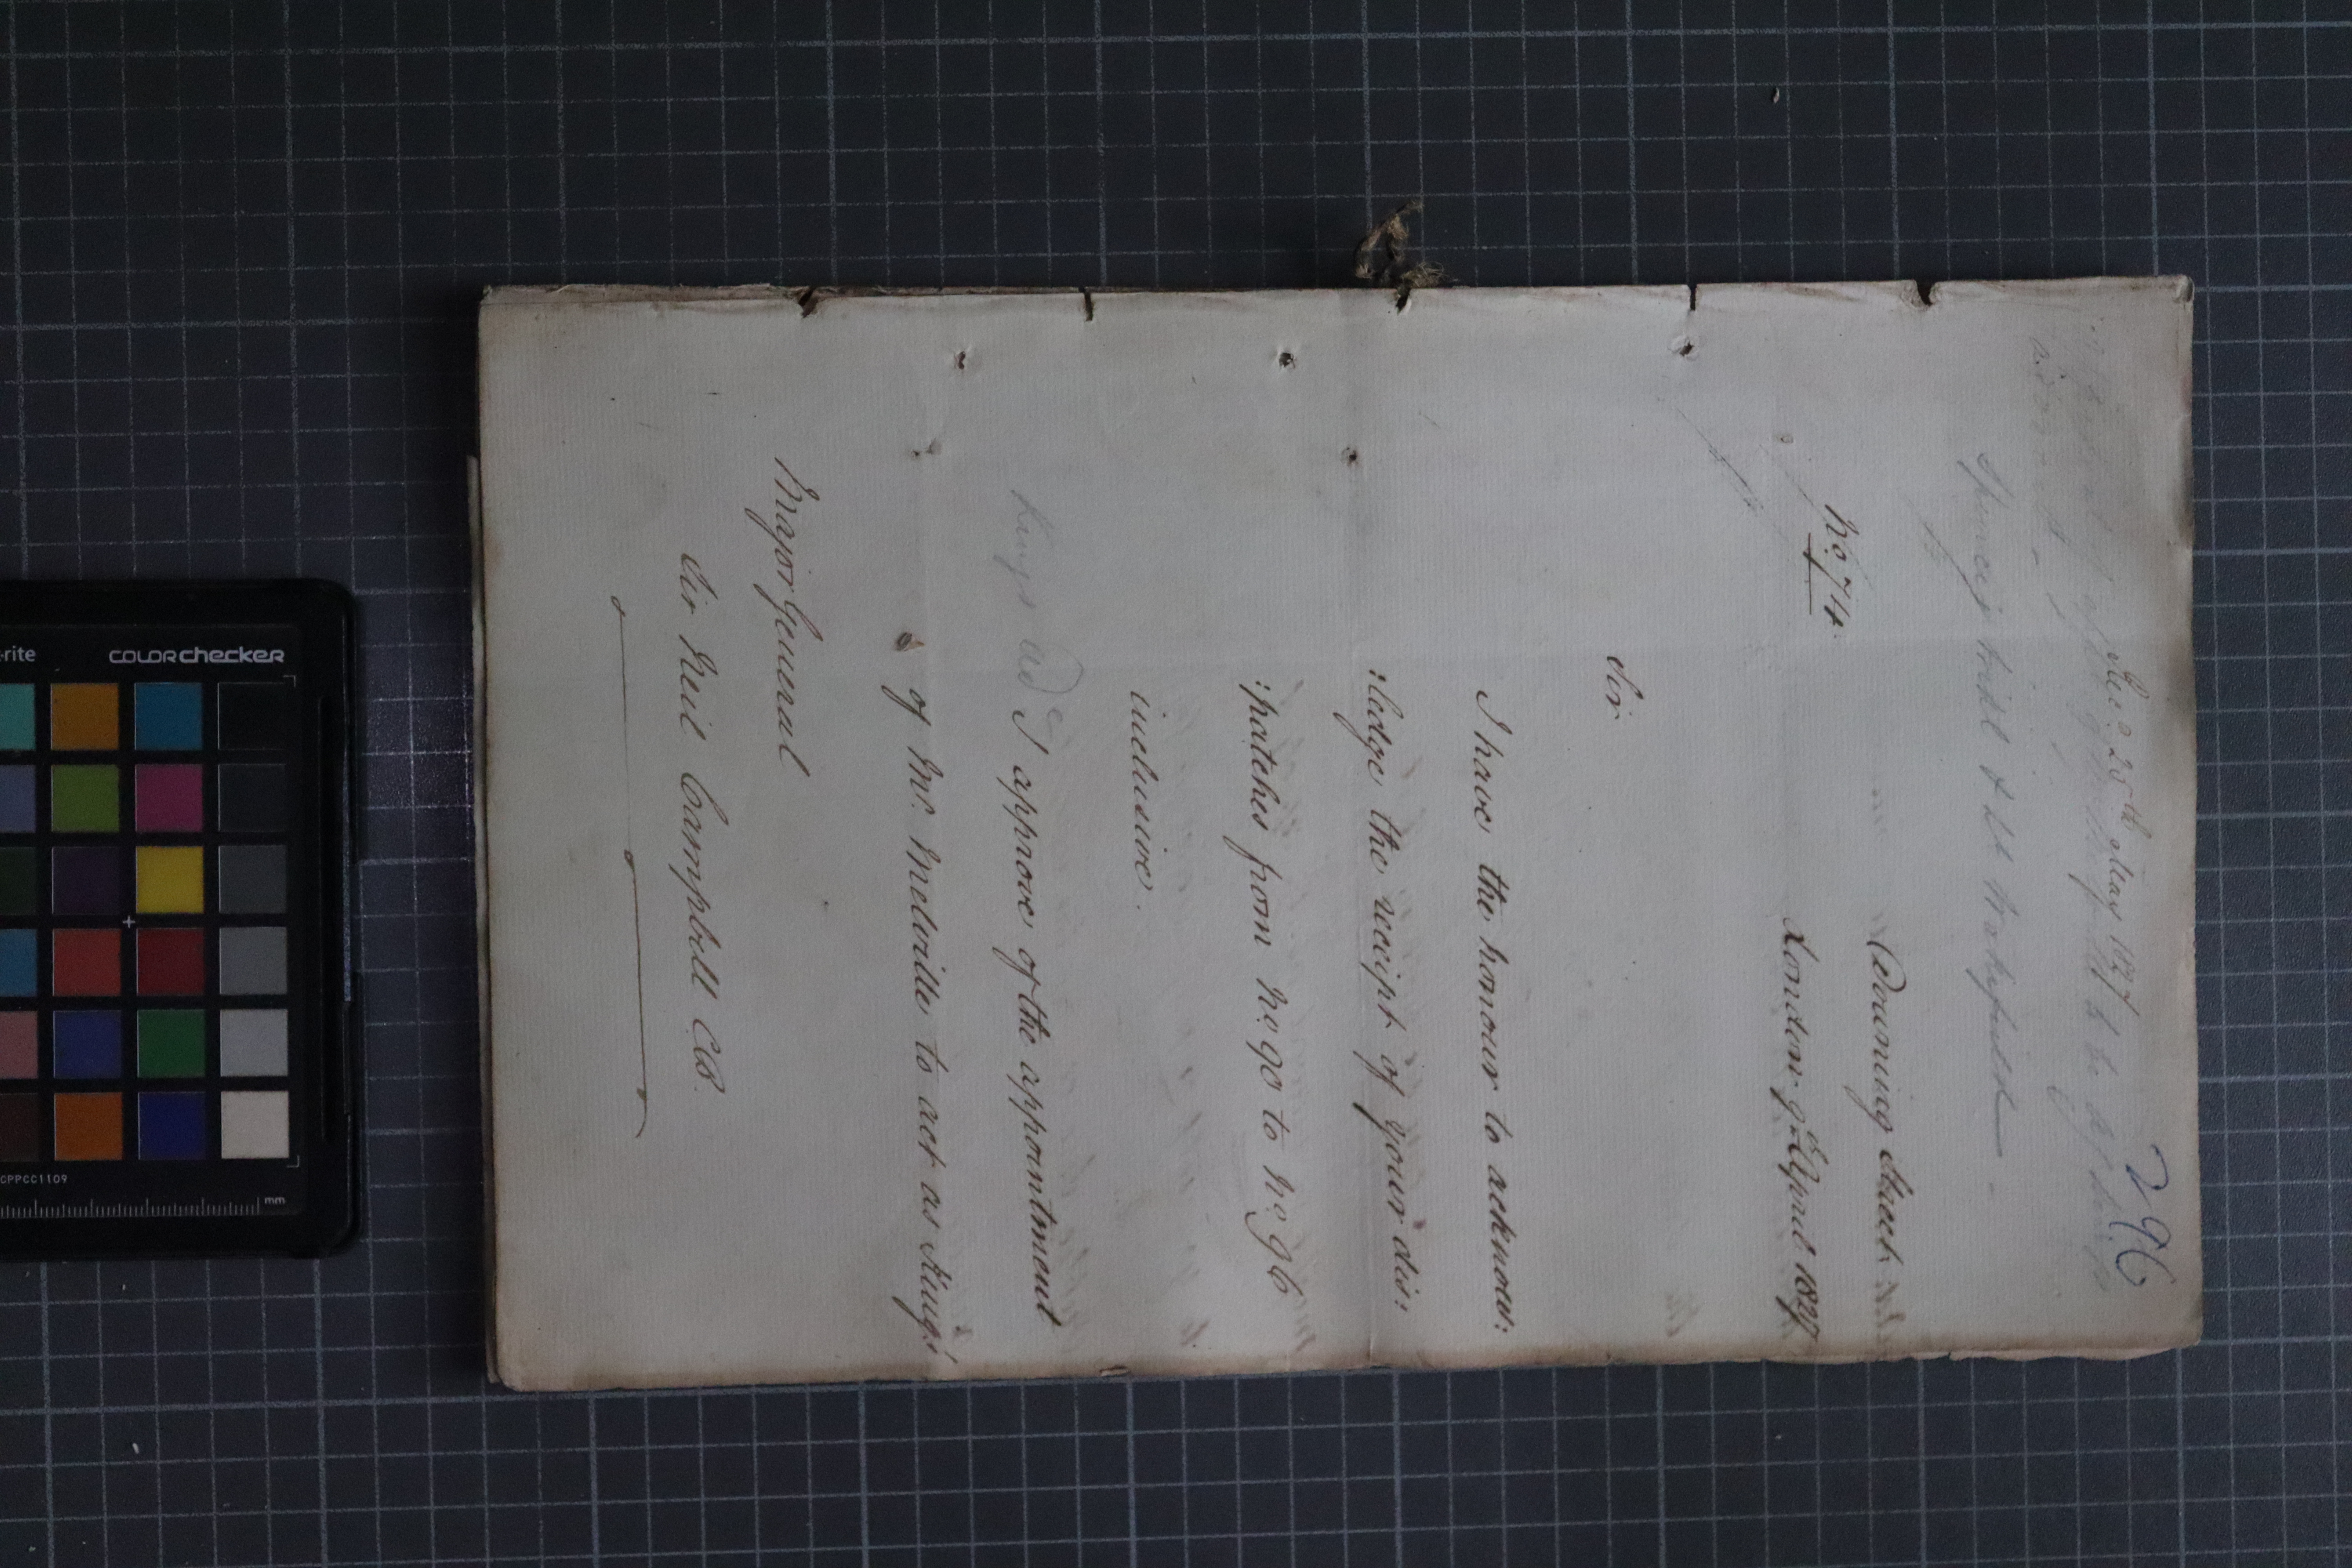 296
Rec.d 25th May 1827
Downing Street
No 74.
London 9 April 1827
Sir
I have the honour to acknow:
:ledge the receipt of your dis:
:patches from No 90 to No 96
inclusive.
Kings Ad
I approve of the appointment
of Mr. Melville to act as King's
Major General
Sir Neil Campbell CB.
-rite
colorchecker
CPPCC1109
mm